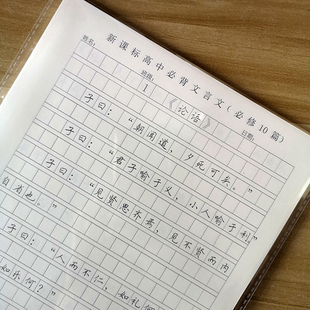 新课标高中必背文言文(必修10篇)
姓名: 班级: 日期:
1
《论语》
子曰:“朝闻道,夕死可矣。”
子曰:“君子喻于义,小人喻于利。”
子曰:“见贤思齐焉,见不贤而内
自省也。”
子曰:“人而不仁,如礼何?
如乐何?”